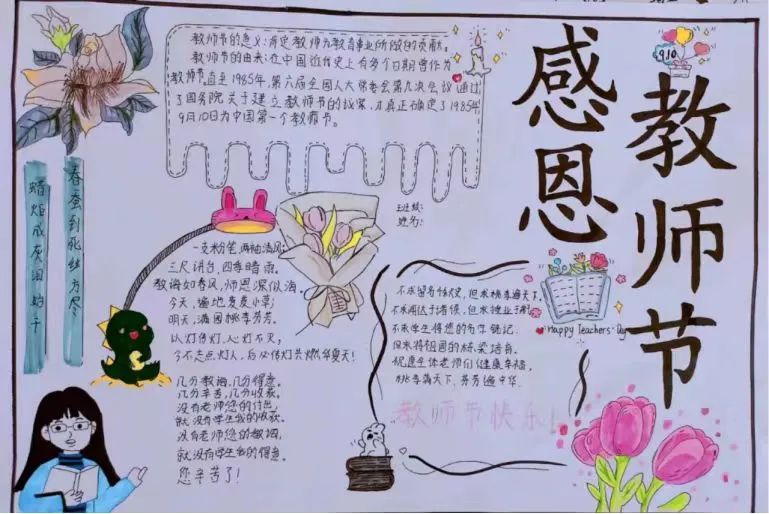 感恩
教师节
9.10
教师节的意义:肯定教师为教育事业所做的贡献。
教师节的由来:在中国近代史上有多个日期曾作为
教师节,直至1985年,第六届全国人大常委会第九次会议通过
了国务院关于建立教师节的议案,才真正确定了1985年
9月10日为中国第一个教师节。
春蚕到死丝方尽
蜡炬成灰泪始干
班级:
姓名:
一支粉笔,两袖清风;
三尺讲台,四季晴雨。
教诲如春风,师恩深似海。
今天,遍地麦麦小草;
明天,满园桃李芬芳。
以灯传灯,心灯不灭,
今天点灯人,后必传灯共燃华夏天!
几分教诲,几分得意。
几分辛苦,几分收获。
没有老师您的付出,
就没有学生我的收获。
没有老师您的教诲,
就没有学生我的得意。
您辛苦了!
不求留有怡史,但求桃李遍天下,
不求闻达于诸侯,但求授业于
不求学生将您的名字铭记,
但求将祖国的栋梁培育。
祝愿全体老师们健康幸福,
桃李满天下,芬芳遍中华.
Happy Teachers' Day
教师节快乐!